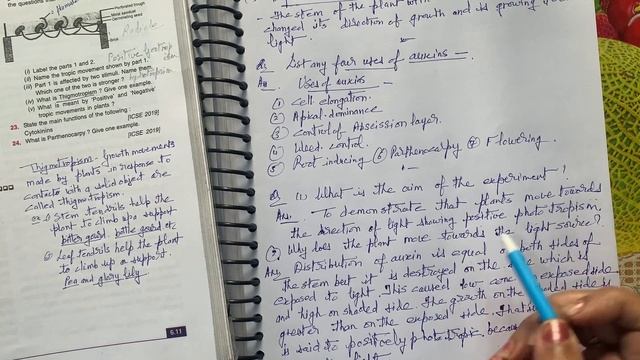 Perforated trough
Germinating seeds
Radicle
(i) Label the parts 1 and 2.
(ii) Name the tropic movement shown by part 1.
(iii) Part 1 is affected by two stimuli. Name them.
Which one of the two is stronger ?
(iv) What is Thigmotropism ? Give one example.
(v) What is meant by 'Positive' and 'Negative'
tropic movements in plants ?
23. State the main functions of the following :
Cytokinins [ICSE 2019]
24. What is Parthenocarpy? Give one example.
[ICSE 2019]
Thigmotropism - Growth movements
made by plants in response to
contacts with a solid object are
called thigmotropism.
ex ① Stem tendrils help the
plant to climb up a support
bitter gourd, bottle gourd etc
② Leaf tendrils help the plant
to climb up a support.
Pea and glory lily.
6.11
- The stem of the plant with
changed its direction of growth and is growing
light.
Q. List any four uses of auxins -
An. Uses of auxins -
① Cell elongation.
② Apical dominance
③ Control of Abscission layer.
④ Weed control.
⑤ Root inducing ⑥ Parthenocarpy ⑦ Flowering.
Q. (1) What is the aim of the experiment?
Ans. To demonstrate that plants move towards
the direction of light showing positive phototropism.
Why does the plant move towards the light source?
Ans. Distribution of auxin is equal on both sides of
the stem but it is destroyed on the side which is
exposed to light. This caused low conc. on exposed side
and high on shaded side. The growth on the shaded side is
greater than on the exposed side. That
is said to positively phototropic because